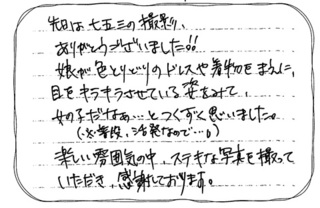 先日は七五三の撮影、
ありがとうございました!!
娘が色とりどりのドレスや着物をまえに、
目をキラキラさせている姿をみて、
女の子だなぁ…とつくづく思いました。
(普段、活発なので…。)
楽しい雰囲気の中、ステキな写真を撮って
いただき、感謝しております。